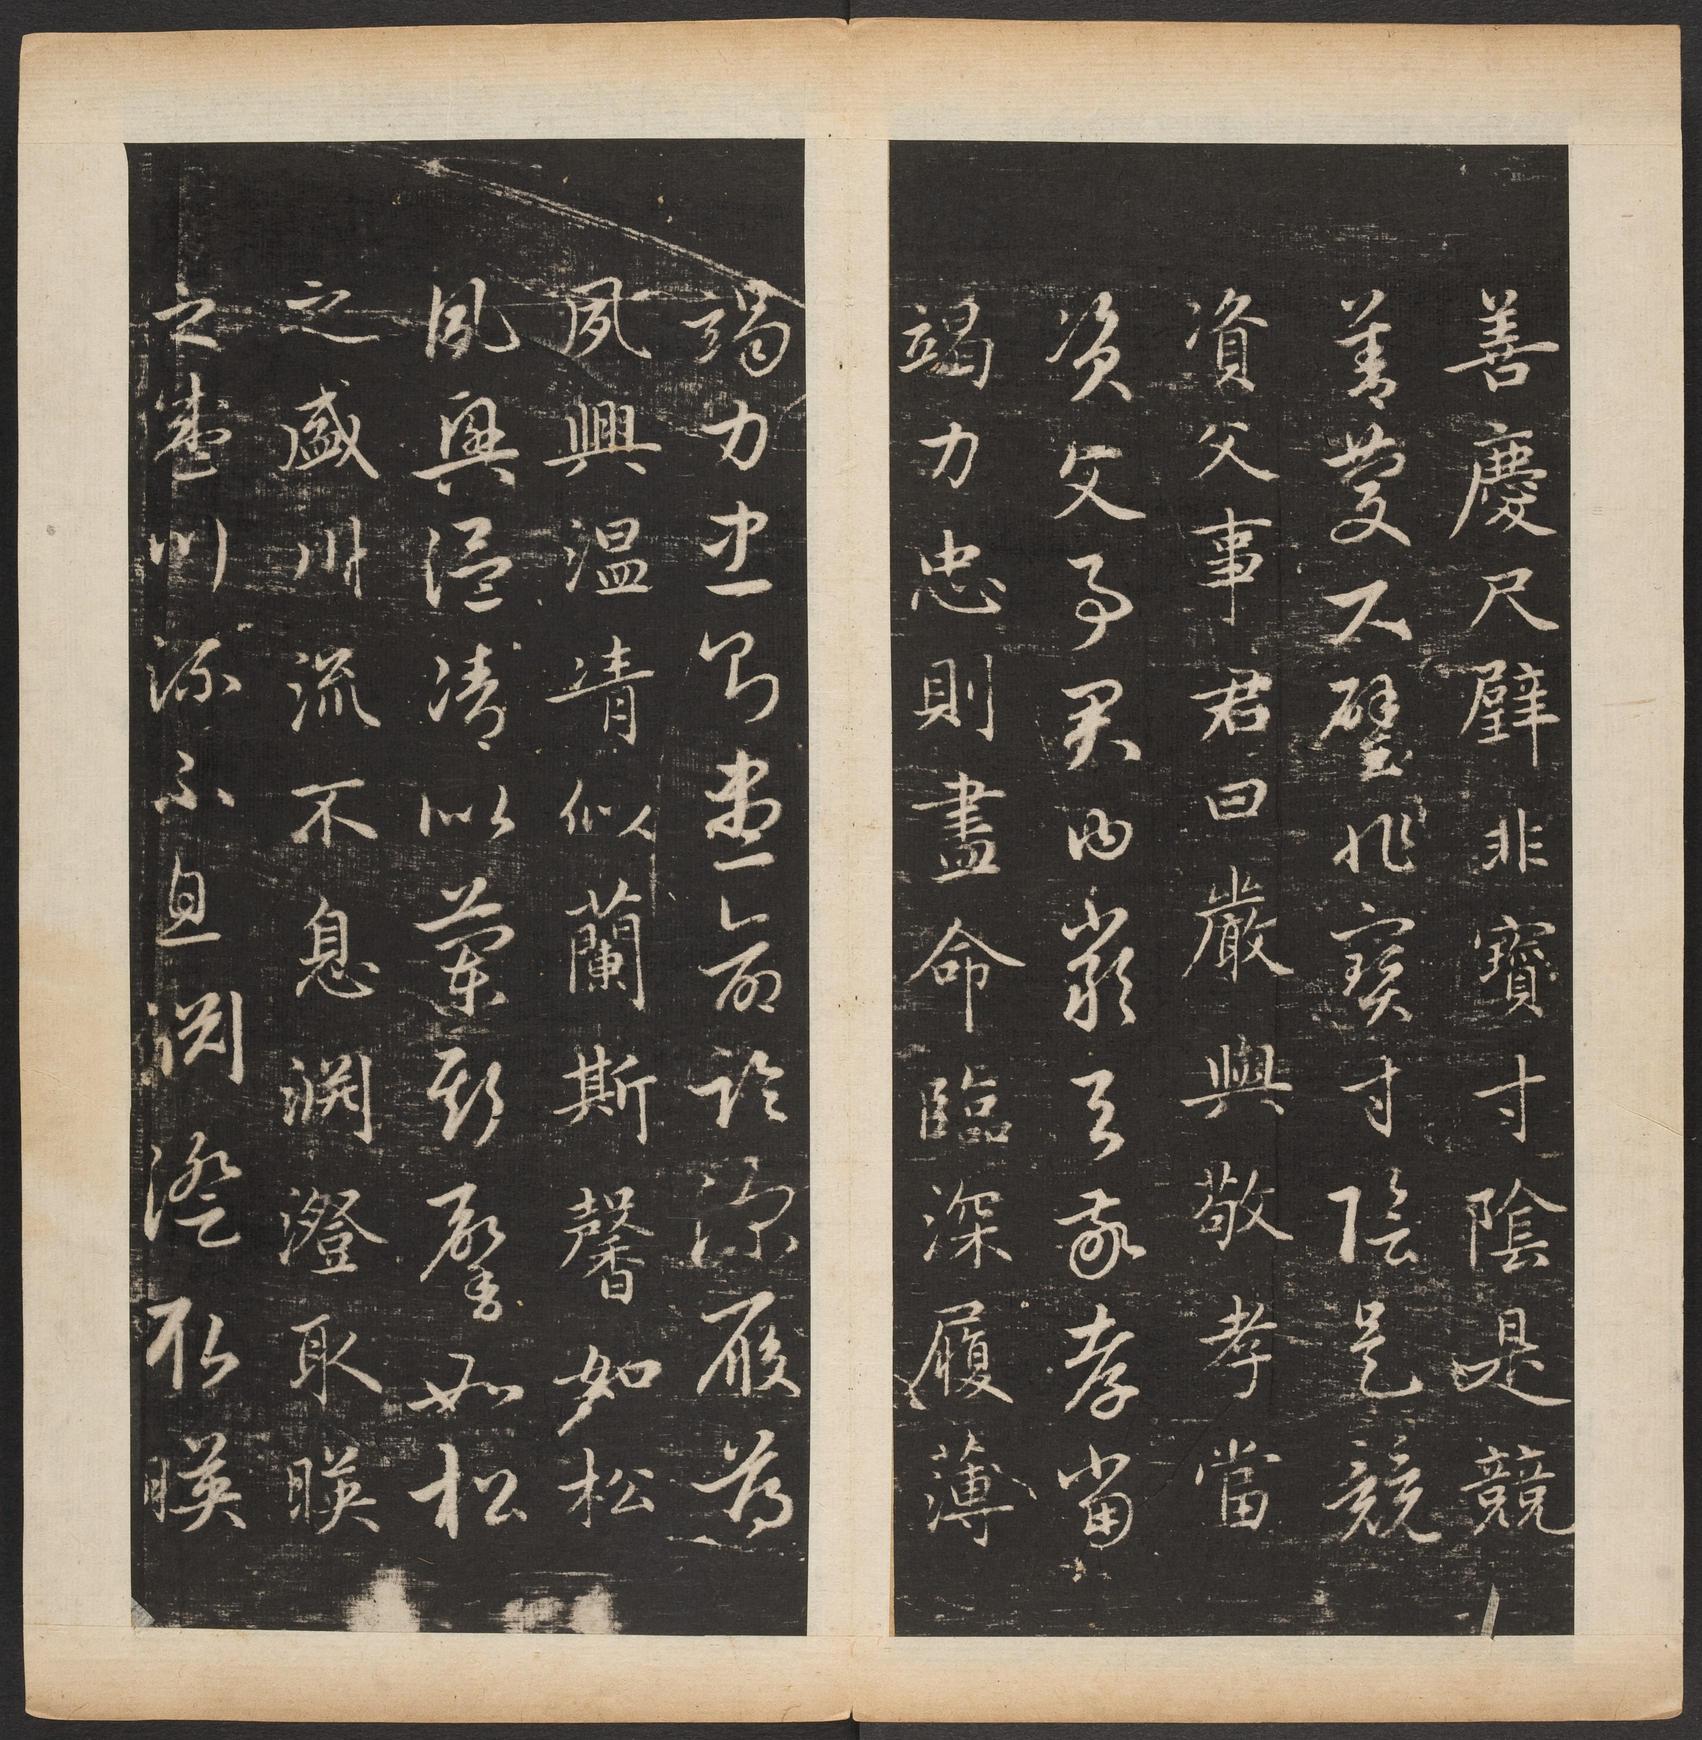 善慶尺璧非寶寸陰是競
善慶尺璧非寶寸陰是競
資父事君曰嚴與敬孝當
資父事君曰嚴與敬孝當
竭力忠則盡命臨深履薄
竭力忠則盡命臨深履薄
夙興温凊似蘭斯馨如松
夙興温凊似蘭斯馨如松
之盛川流不息淵澄取暎
之盛川流不息淵澄取暎